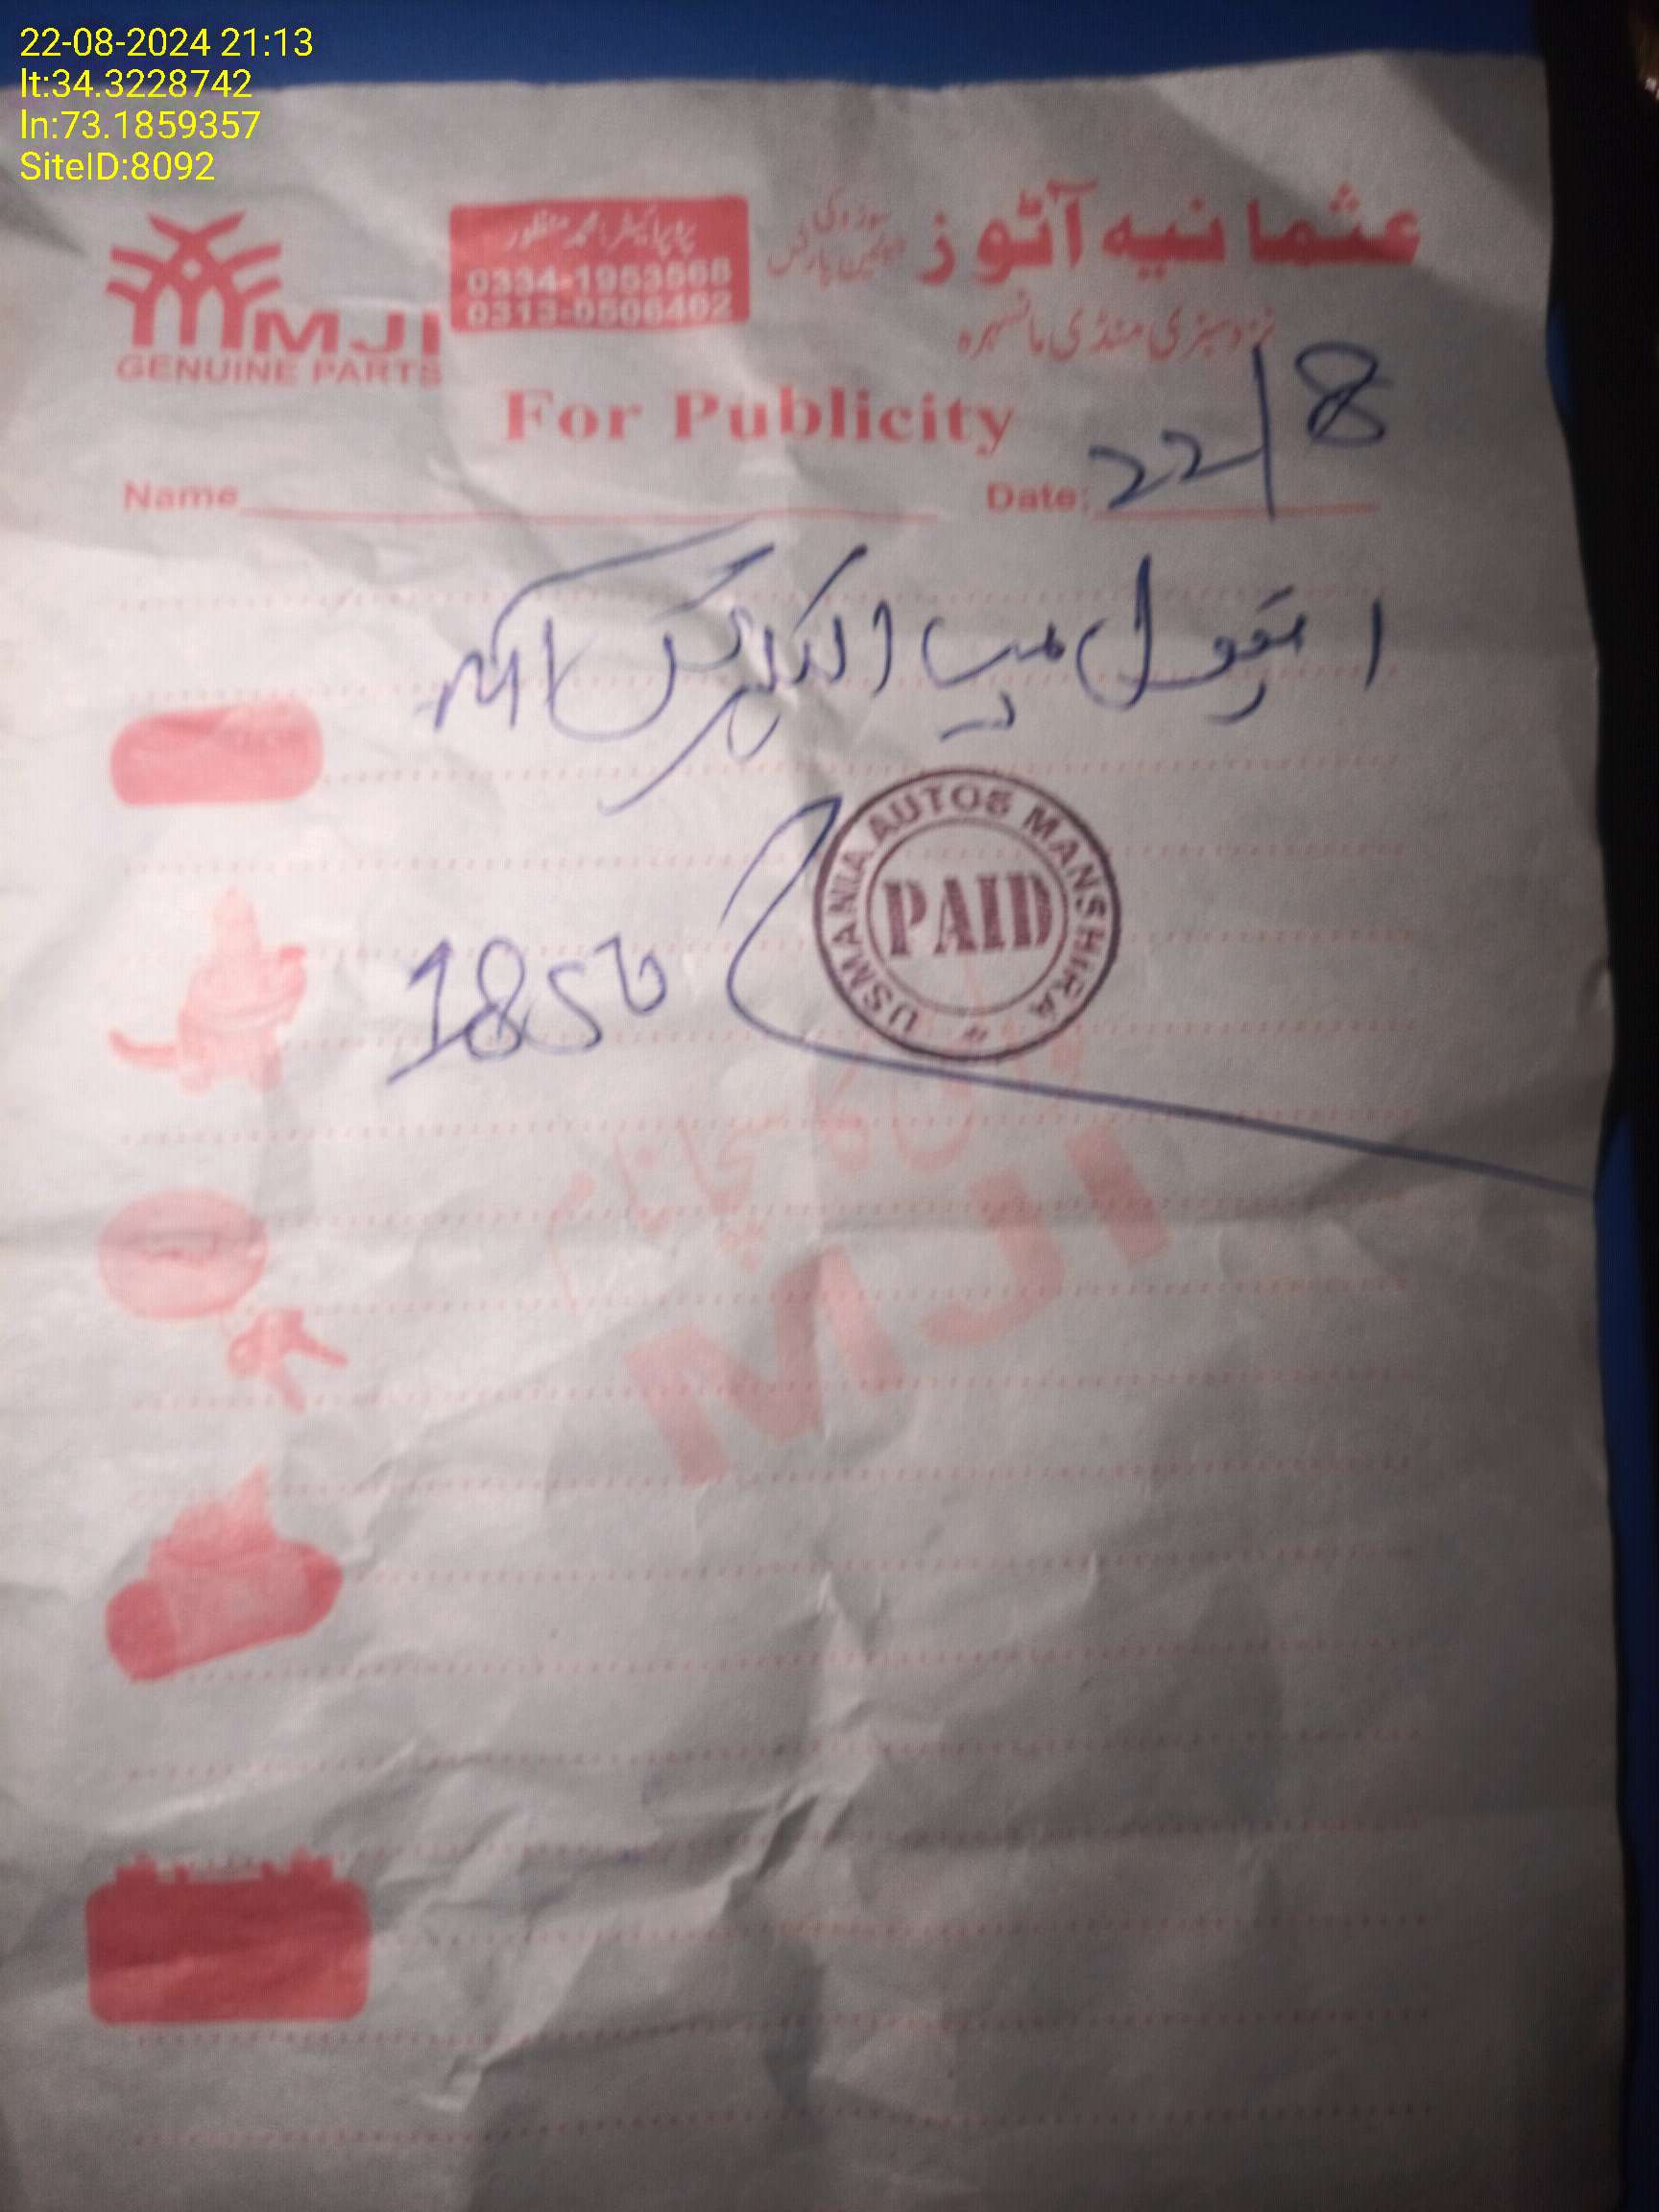 22-08-2024 21:13
lt:34.3228742
ln:73.1859357
SiteID:8092
عثمانیہ آٹوز
سوزوکی
جینین پارٹس
نزد سبزی منڈی مانسہرہ
پروپرائیٹر: محمد منظور
0334-1953568
0313-0506402
MJI
GENUINE PARTS
For Publicity
Name
Date: 22/8
الیکٹرک
1850
USMANIA AUTOS MANSHIRA
PAID
MJI